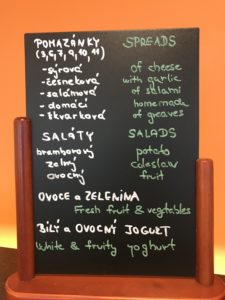 POMAZÁNKY SPREADS
(3,6,7,9,10,11)
-sýrová of cheese
-česneková with garlic
-salámová of salami
-domácí homemade
-škvarková of greaves
SALÁTY SALADS
bramborový potato
zelný coleslaw
ovocný fruit
OVOCE a ZELENINA
Fresh fruit & vegetables
BÍLÝ a OVOCNÝ JOGURT
White & fruity yoghurt